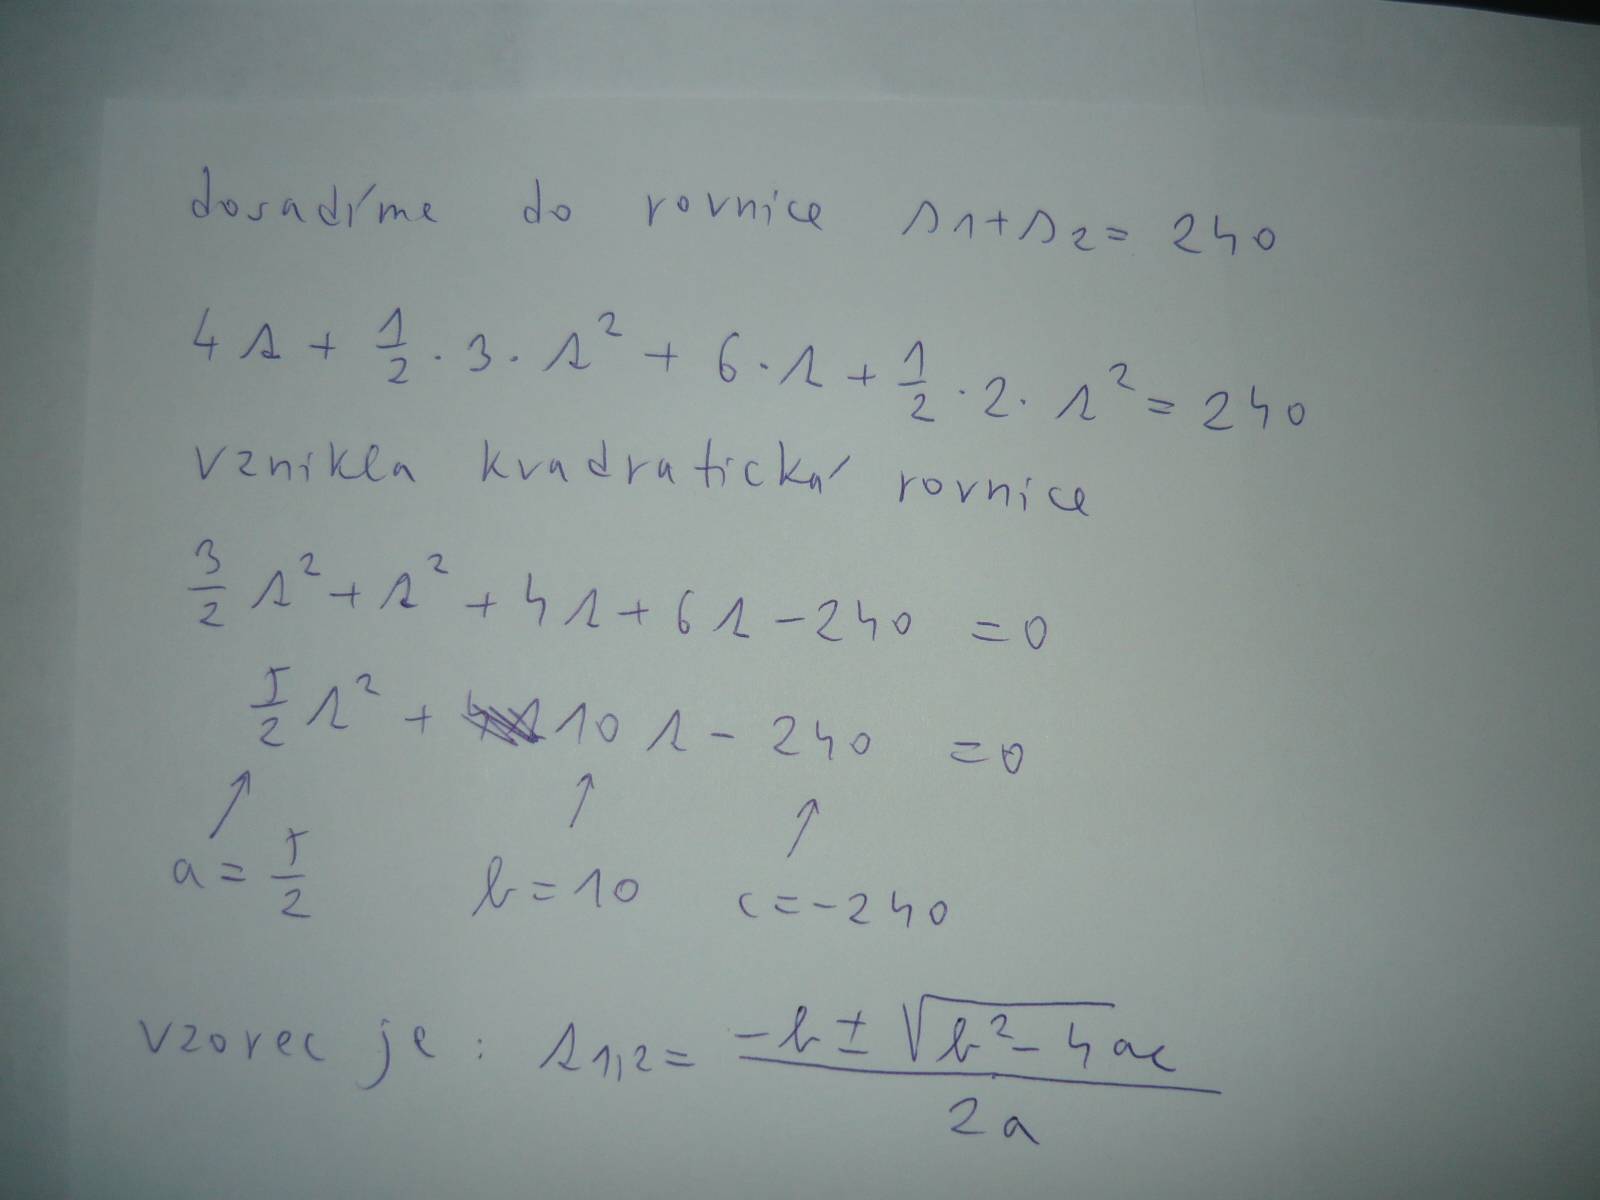 dosadíme do rovnice s1+s2= 240
4t + 1/2 · 3 · t² + 6 · t + 1/2 · 2 · t² = 240
vznikla kvadratická rovnice
3/2 t² + t² + 4t + 6t - 240 = 0
5/2 t² + 10 t - 240 = 0
a = 5/2 b = 10 c = -240
vzorec je : t1,2 = (-b ± √(b² - 4ac)) / 2a